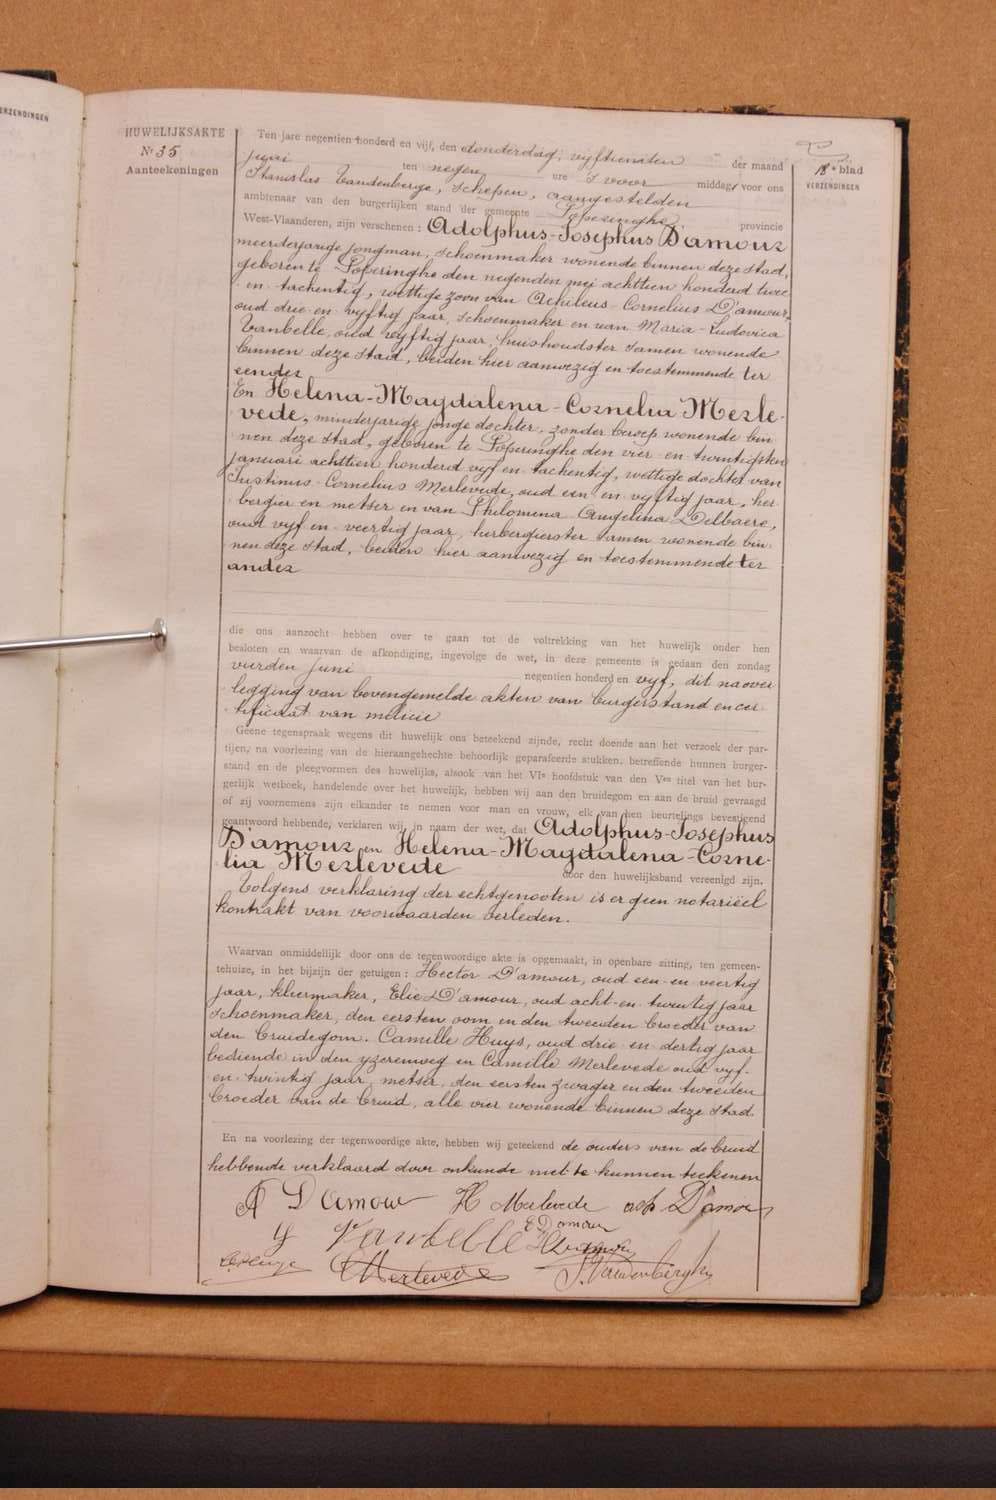 ERZENDINGEN
HUWELIJKSAKTE
Nr 35
Aanteekeningen
18e blad
VERZENDINGEN
Ten jare negentien honderd en vijf, den donderdag, vyftienden der maand
juni ten negen ure 's voor middags voor ons
Stanislas Vandenberge, schepen, aangestelden
ambtenaar van den burgerlijken stand der gemeente Poperinghe provincie
West-Vlaanderen, zijn verschenen : Adolphus-Josephus D'amour
meerderjarige jongman, schoenmaker wonende binnen deze stad,
geboren te Poperinghe den negenden mei achttien honderd twee
en tachentig, wettige zoon van Achileus-Cornelius D'amour,
oud drie en vyftig jaar, schoenmaker en van Maria-Ludovica
Vanbelle, oud vyftig jaar, huishoudster samen wonende
binnen deze stad, beiden hier aanwezig en toestemmende ter
eender
En Helena-Magdalena-Cornelia Merle-
vede, minderjarige jonge dochter, zonder beroep wonende bin-
nen deze stad, geboren te Poperinghe den vier en twintigsten
januari achttien honderd vyf en tachentig, wettige dochter van
Justinus-Cornelius Merlevede, oud een en vyftig jaar, her-
bergier en metser en van Philomena-Angelina Delbaere,
oud vyf en veertig jaar, herbergierster samen wonende bin-
nen deze stad, beiden hier aanwezig en toestemmende ter
ander
die ons aanzocht hebben over te gaan tot de voltrekking van het huwelijk onder hen
besloten en waarvan de afkondiging, ingevolge de wet, in deze gemeente is gedaan den zondag
vierden juni negentien honderd en vyf, dit na over
legging van bovengemelde akten van burgerstand en cer-
tificaat van melicie
Geene tegenspraak wegens dit huwelijk ons beteekend zijnde, recht doende aan het verzoek der par-
tijen, na voorlezing van de hieraangehechte behoorlijk geparafeerde stukken, betreffende hunnen burger-
stand en de pleegvormen des huwelijks, alsook van het VIe hoofdstuk van den Ven titel van het bur-
gerlijk wetboek, handelende over het huwelijk, hebben wij aan den bruidegom en aan de bruid gevraagd
of zij voornemens zijn elkander te nemen voor man en vrouw, elk van hen beurtelings bevestigend
geantwoord hebbende, verklaren wij, in naam der wet, dat Adolphus-Josephus
D'amour en Helena-Magdalena-Corne-
lia Merlevede door den huwelijksband vereenigd zijn.
Volgens verklaring der echtgenooten is er geen notarieël
kontrakt van voorwaarden verleden.
Waarvan onmiddellijk door ons de tegenwoordige akte is opgemaakt, in openbare zitting, ten gemeen-
tehuize, in het bijzijn der getuigen : Hector D'amour, oud een en veertig
jaar, kleermaker, Elie D'amour, oud acht en twintig jaar
schoenmaker, den eersten oom en den tweeden broeder van
den bruidegom. Camille Huys, oud drie en dertig jaar
bediende in den yzerenweg en Camille Merlevede oud vyf-
en twintig jaar, metser, den eersten zwager en den tweeden
broeder van de bruid, alle vier wonende binnen deze stad.
En na voorlezing der tegenwoordige akte, hebben wij geteekend de ouders van de bruid
hebbende verklaard door onkunde niet te kunnen teekenen
A Damour H Merlevede ach Damour
Vanbelle E Damour
C Merlevede S. Vandenberghe